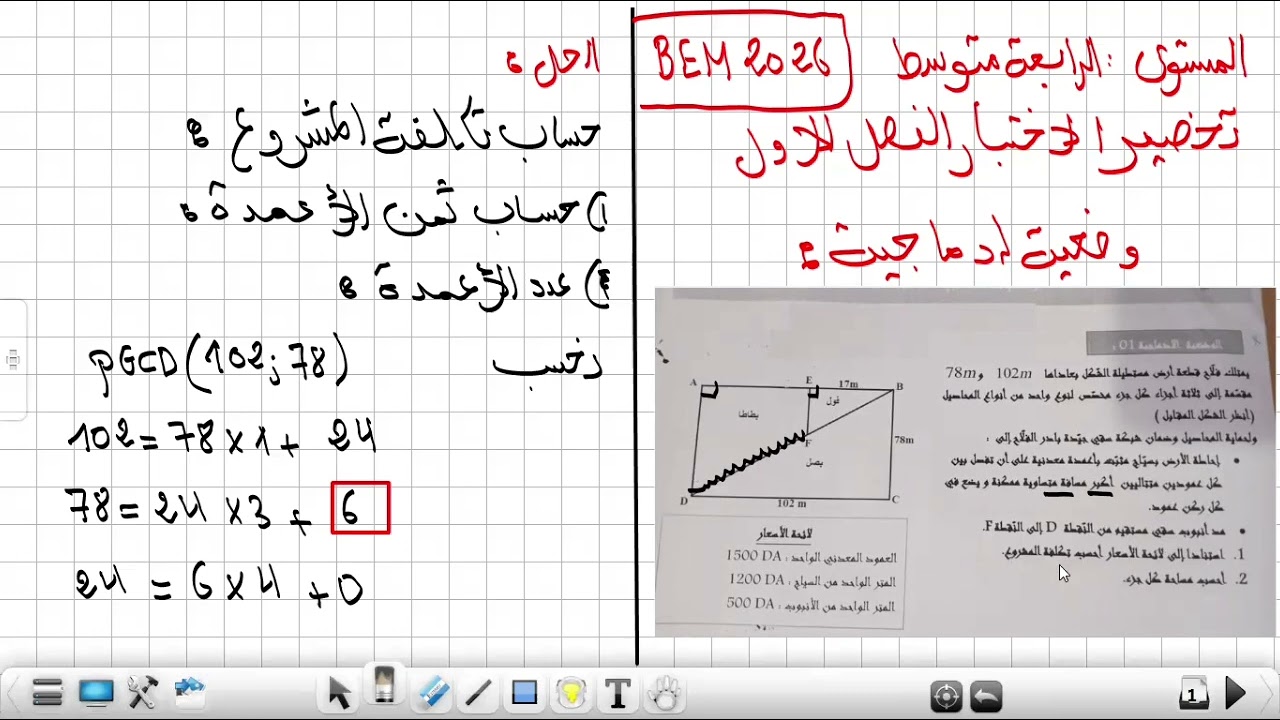 المستوى : الرابعة متوسط
BEM 2026
تحضير الاختبار الفصل الاول
وضعية ادماجية :
الوضعية الادماجية 01 :
يمتلك فلاح قطعة أرض مستطيلة الشكل بعاداها 102m و 78m
مقسّمة إلى ثلاثة أجزاء كل جزء مخصّص لنوع واحد من أنواع المحاصيل
(أنظر الشكل المقابل)
ولحماية المحاصيل وضمان شبكة سقي جيّدة بادر الفلّاح إلى :
• إحاطة الأرض بسيّاج مثبّت بأعمدة معدنية على أن تفصل بين
كل عمودين متتاليين أكبر مسافة متساوية ممكنة و يضع في
كل ركن عمود.
• مد أنبوب سقي مستقيم من النّقطة D إلى النّقطة F.
1. استنادا إلى لائحة الأسعار أحسب تكلفة المشروع.
2. أحسب مساحة كل جزء.
A
E
17m
B
فول
بطاطا
F
78m
بصل
D
102 m
C
لائحة الأسعار
العمود المعدني الواحد : 1500 DA
المتر الواحد من السياج : 1200 DA
المتر الواحد من الأنبوب : 500 DA
الحل :
حساب تكلفة المشروع :
1) حساب ثمن الأعمدة :
عدد الأعمدة :
نحسب PGCD(102;78)
102 = 78 x 1 + 24
78 = 24 x 3 + 6
24 = 6 x 4 + 0
T
1